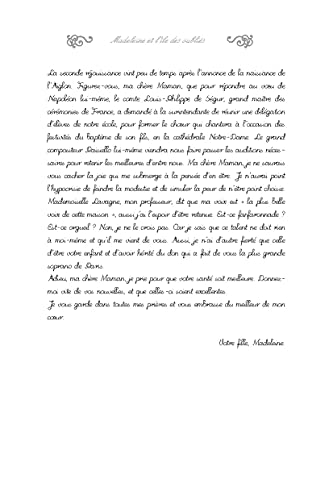 Madeleine et l'île des oubliés
La seconde réjouissance vint peu de temps après l'annonce de la naissance de
l'Aiglon. Figurez-vous, ma chère Maman, que pour répondre au vœu de
Napoléon lui-même, le comte Louis-Philippe de Ségur, grand maître des
cérémonies de France, a demandé à la surintendante de réunir une délégation
d'élèves de notre école, pour former le chœur qui chantera à l'occasion des
festivités du baptême de son fils, en la cathédrale Notre-Dame. Le grand
compositeur Paisiello lui-même viendra nous faire passer les auditions néces-
saires pour retenir les meilleures d'entre nous. Ma chère Maman, je ne saurais
vous cacher la joie qui me submerge à la pensée d'en être. Je n'aurai point
l'hypocrisie de feindre la modestie et de simuler la peur de n'être point choisie.
Mademoiselle Lavigne, mon professeur, dit que ma voix est « la plus belle
voix de cette maison », aussi j'ai l'espoir d'être retenue. Est-ce fanfaronnade ?
Est-ce orgueil ? Non, je ne le crois pas. Car je sais que ce talent ne doit rien
à moi-même et qu'il me vient de vous. Aussi, je n'ai d'autre fierté que celle
d'être votre enfant et d'avoir hérité du don qui a fait de vous la plus grande
soprano de Paris.
Adieu, ma chère Maman, je prie pour que votre santé soit meilleure. Donnez-
moi vite de vos nouvelles, et que celles-ci soient excellentes.
Je vous garde dans toutes mes prières et vous embrasse du meilleur de mon
cœur.
Votre fille, Madeleine